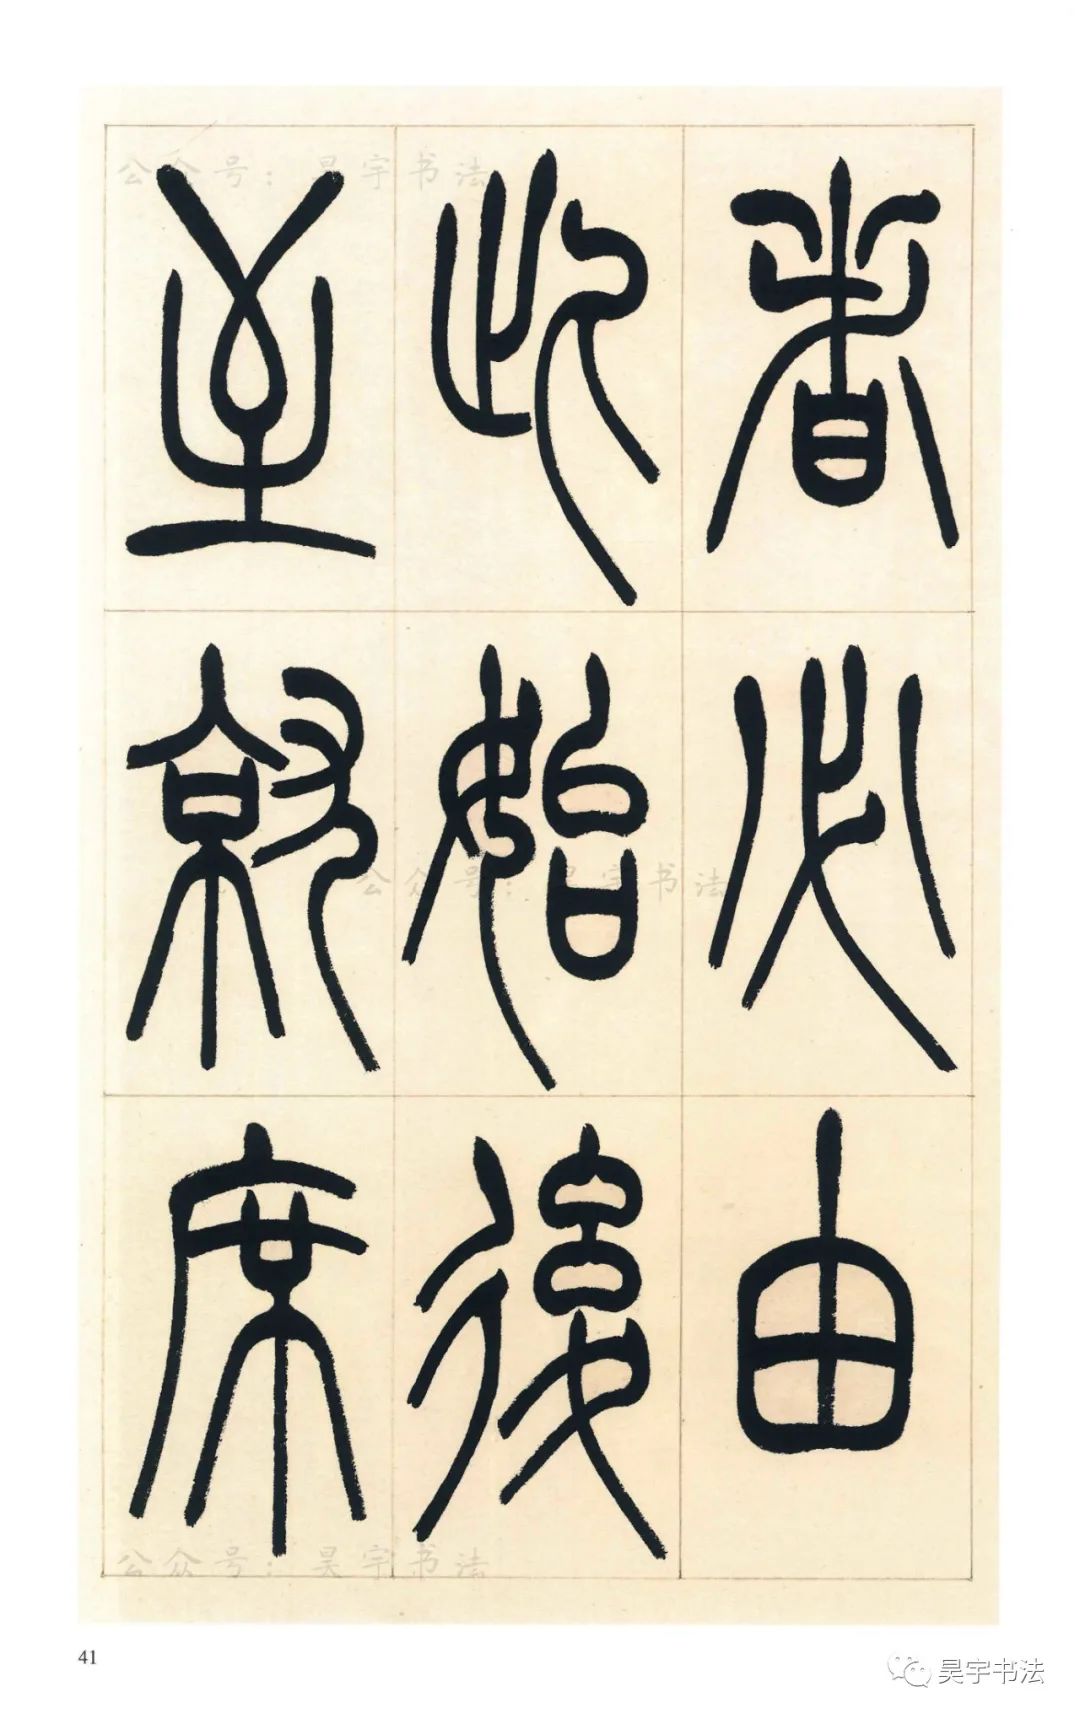 者必由
此始後
至就席
公众号：昊宇书法
公众号：昊宇书法
公众号：昊宇书法
41
昊宇书法